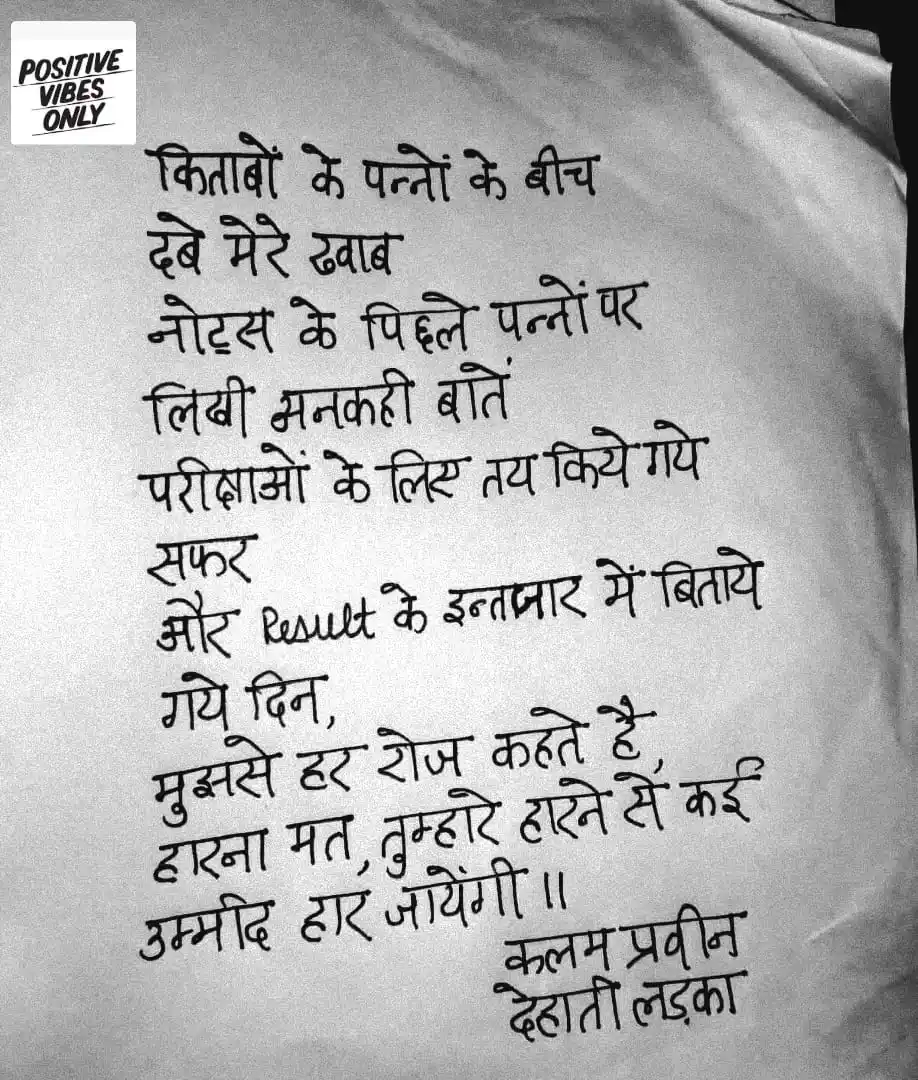 POSITIVE
VIBES
ONLY
किताबों के पन्नों के बीच
दबे मेरे ख्वाब
नोट्स के पिछले पन्नों पर
लिखी अनकही बातें
परीक्षाओं के लिए तय किये गये
सफर
और Result के इन्तजार में बिताये
गये दिन,
मुझसे हर रोज कहते है,
हारना मत, तुम्हारे हारने से कई
उम्मीद हार जायेंगी ॥
कलम प्रवीन
देहाती लड़का